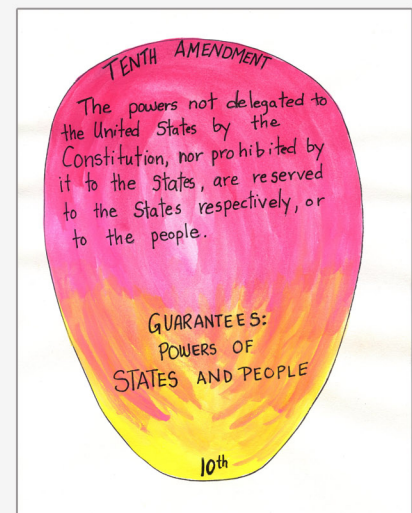 TENTH AMENDMENT
The powers not delegated to
the United States by the
Constitution, nor prohibited by
it to the States, are reserved
to the States respectively, or
to the people.
GUARANTEES:
POWERS OF
STATES AND PEOPLE
10th